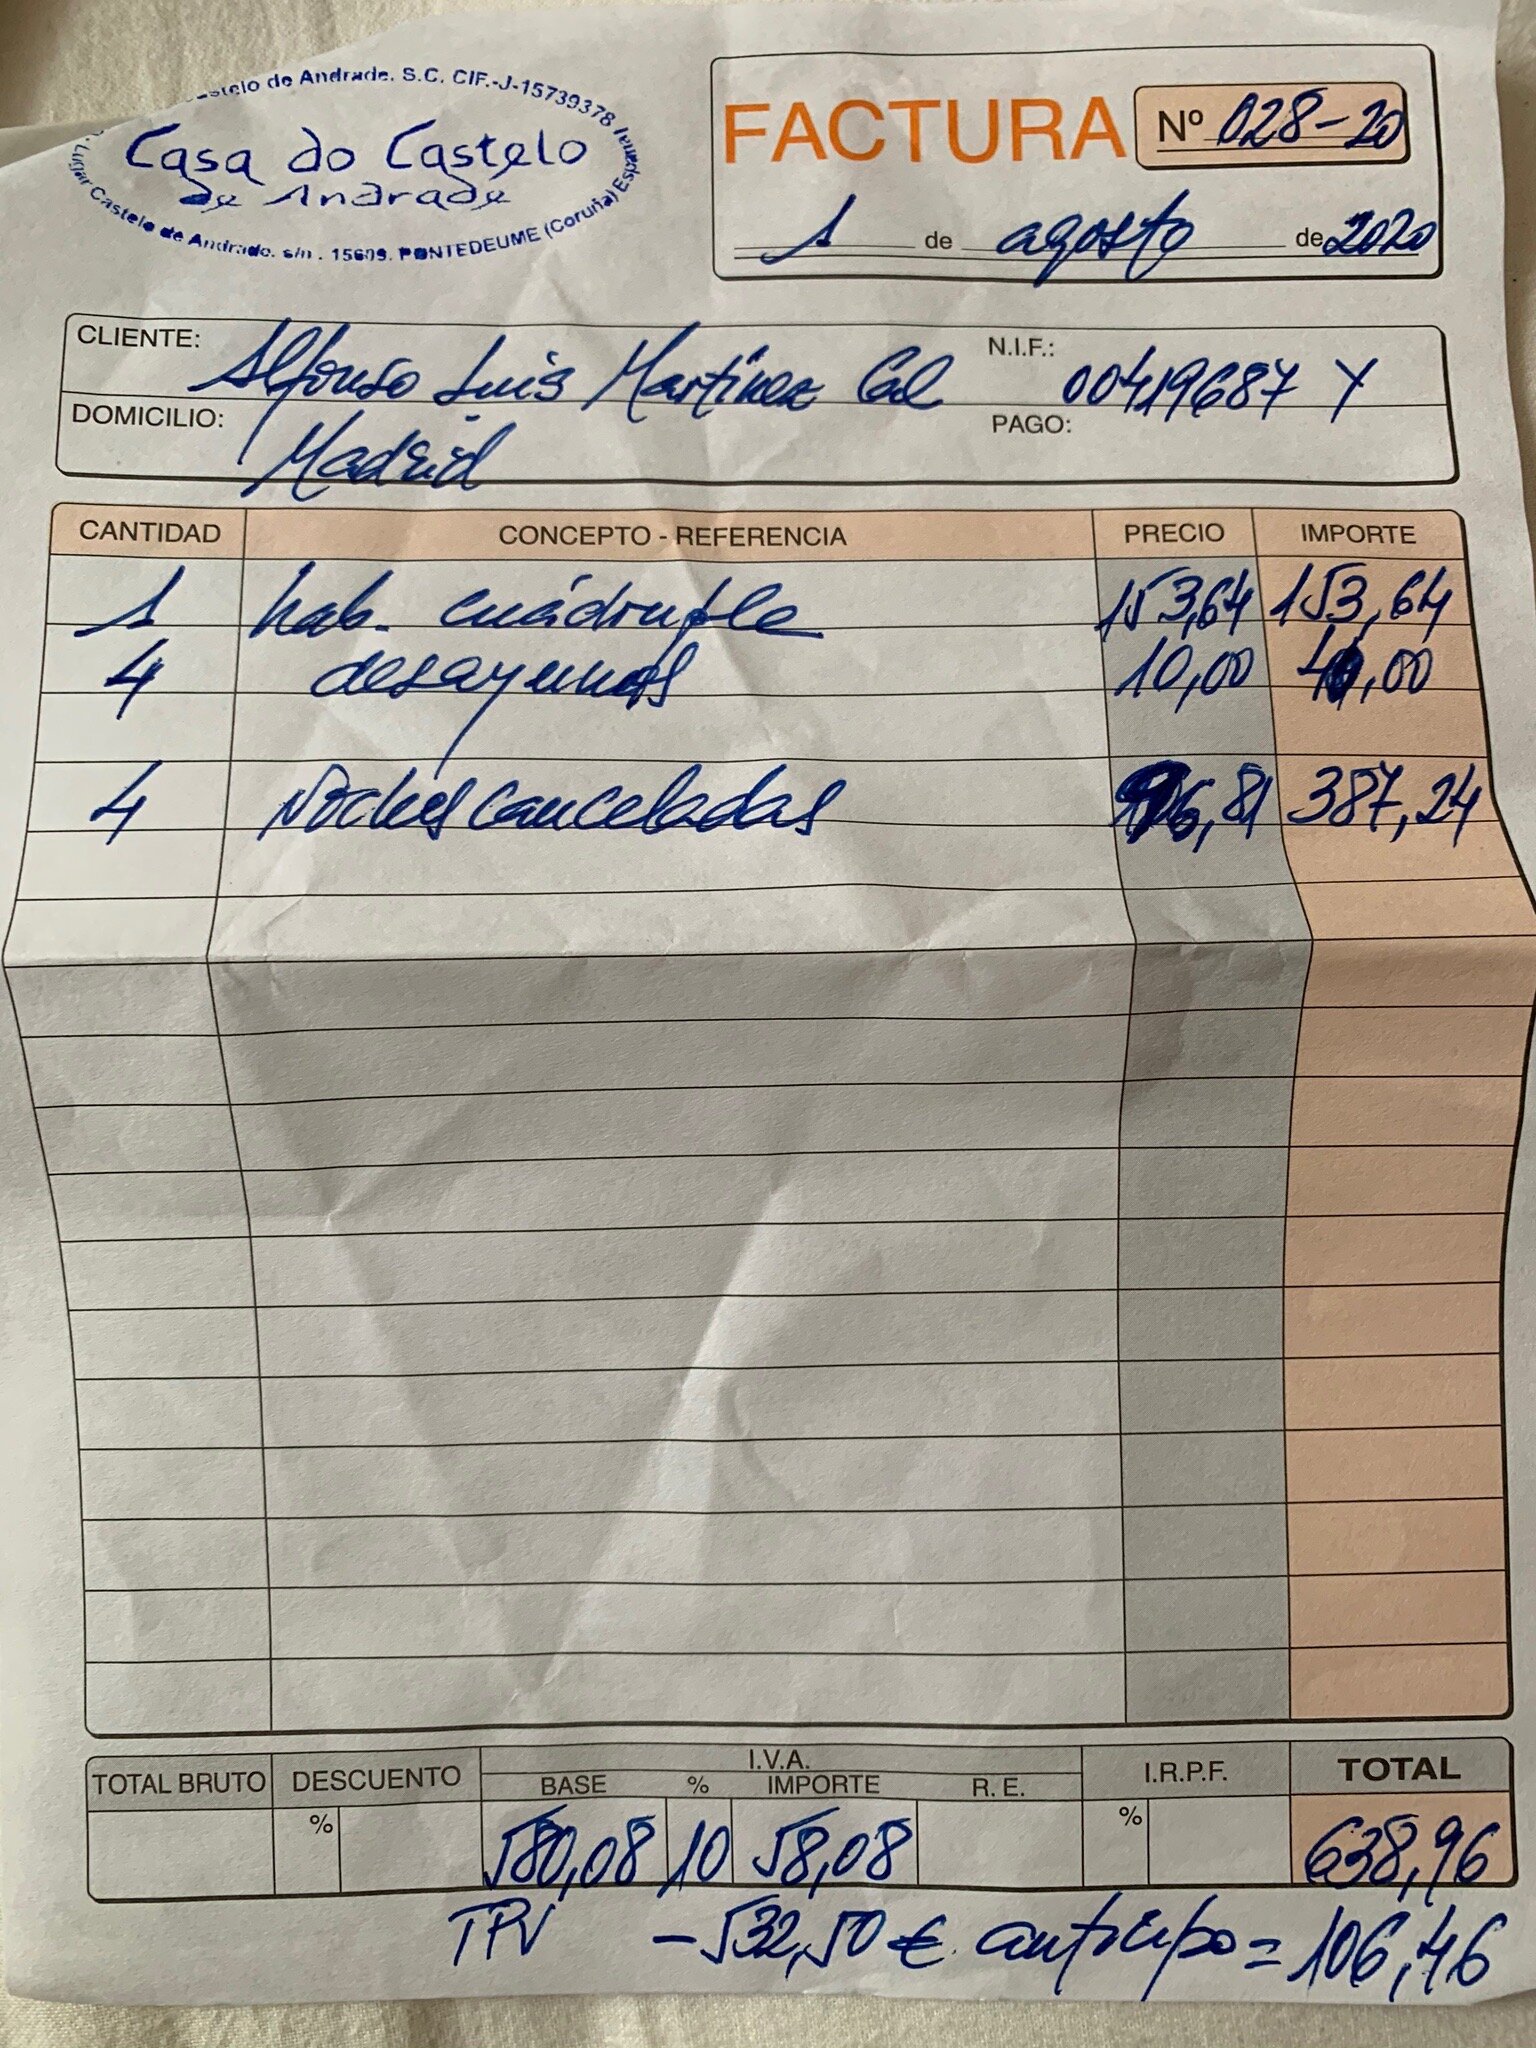 Castelo de Andrade. S.C. CIF.-J-15739378
Casa do Castelo
de Andrade
Lugar Castelo de Andrade. s/n . 15609. PONTEDEUME (Coruña) España
FACTURA Nº 028-20
1 de agosto de 2020
CLIENTE: Alfonso Luis Martínez Cal N.I.F.: 00419687 Y
DOMICILIO: Madrid PAGO:
CANTIDAD CONCEPTO - REFERENCIA PRECIO IMPORTE
1 hab. cuádruple 153,64 153,64
4 desayunos 10,00 40,00
4 Noches canceladas 96,81 387,24
TOTAL BRUTO DESCUENTO I.V.A. I.R.P.F. TOTAL
BASE % IMPORTE R. E.
% 580,08 10 58,08 % 638,96
TPV -532,50 € anticipo = 106,46